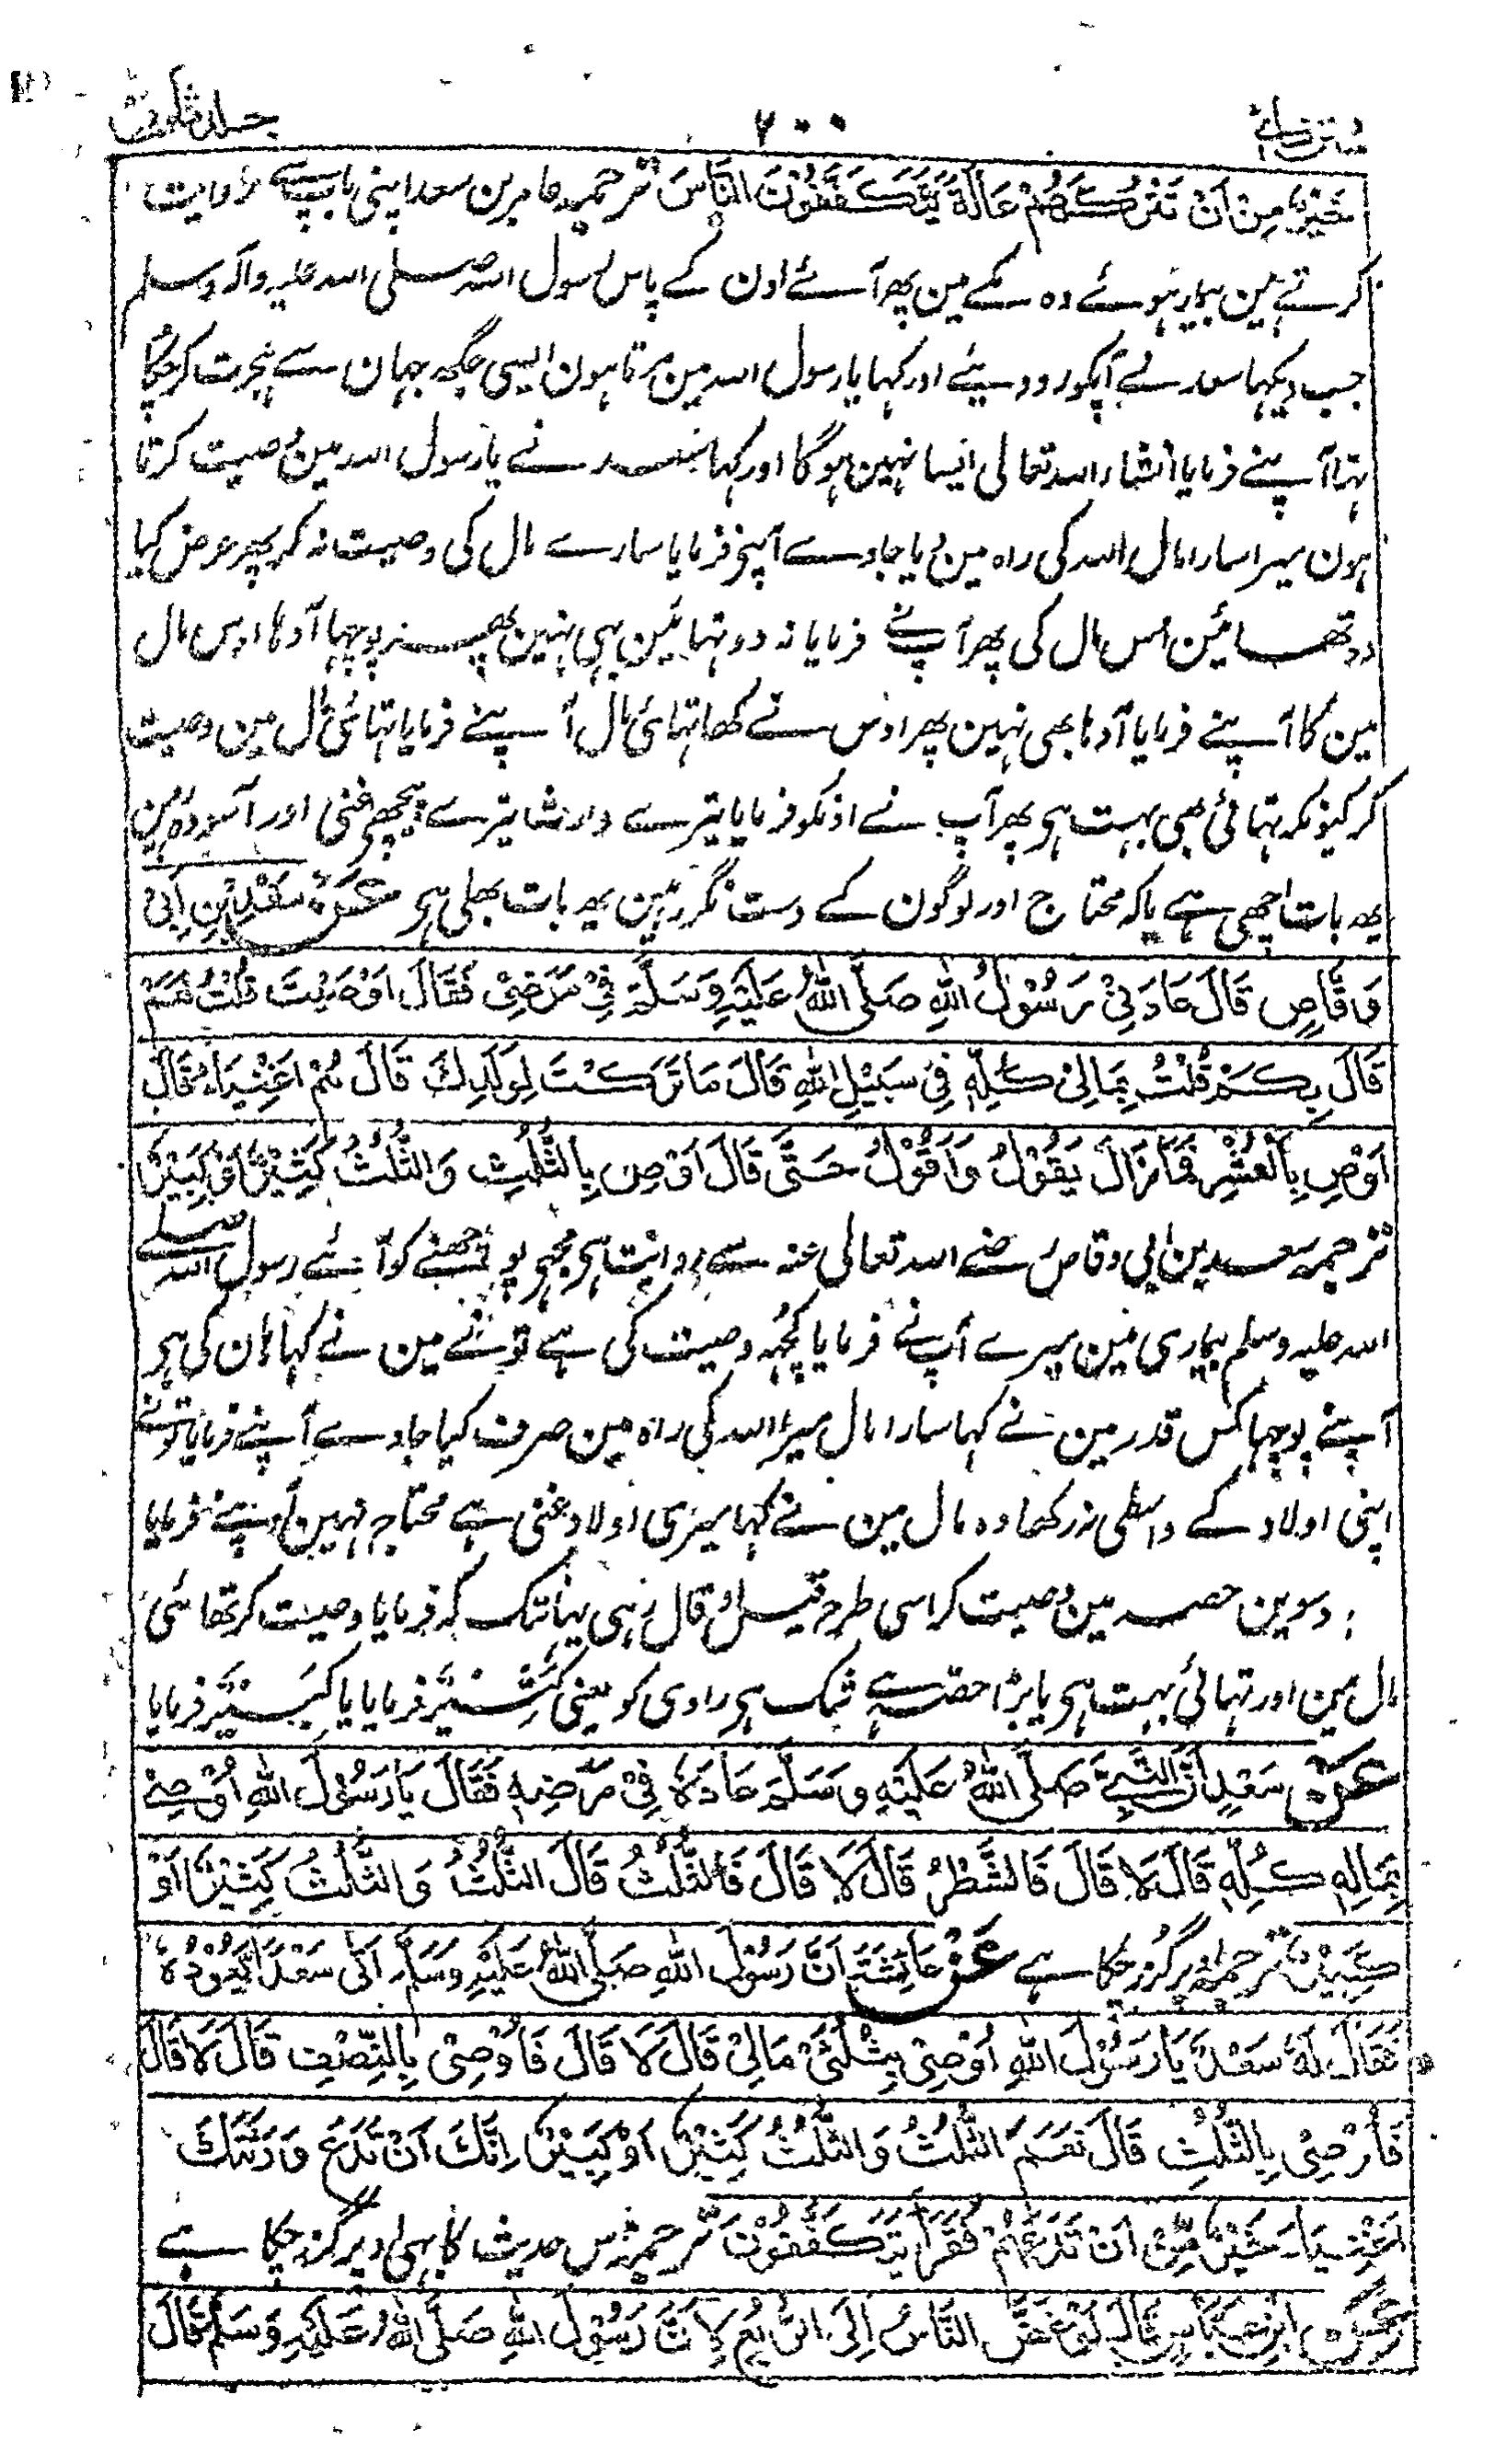 ۷۰۰
خَيْرٌ مِنْ اَنْ تَتْرُكَهُمْ عَالَةً يَتَكَفَّفُوْنَ النَّاسَ ترجمہ عامر بن سعد اپنی باپ سے روایت
کرتے ہین بیمار ہوئے وہ مکے مین پھر آئے اون کے پاس رسول اللہ صلی اللہ علیہ وآلہ وسلم
جب دیکہا سعد نے آپکو رو دیئے اور کہا یا رسول اللہ مین مرتا ہون ایسی جگہہ جہان سے ہجرت کرچکا
تہا آپنے فرمایا انشاء اللہ تعالی ایسا نہین ہوگا اور کہا سعد نے یا رسول اللہ مین وصیت کرتا
ہون میرا سارا مال اللہ کی راہ مین دیا جاوے آپنے فرمایا سارے مال کی وصیت نہ کر پھر عرض کیا
دو تھائین اس مال کی پھر آپنے فرمایا نہ دو تہائین بہی نہین پھر پوچہا آدہا اوس مال
مین کا آپنے فرمایا آدہا بھی نہین پھر اوس نے کھا تہائی مال آپنے فرمایا تہائی مال مین وصیت
کر کیونکہ تہائی بھی بہت ہی پھر آپ نے اونکو فرمایا تیرے وارث تیرے پیچھے غنی اور آسودہ رہین
یھہ بات اچھی ہے یا کہ محتاج اور لوگون کے دست نگر رہین یھہ بات بھلی ہی عَنْ سَعْدِ بْنِ اَبِيْ
وَقَّاصٍ قَالَ عَادَنِيْ رَسُوْلُ اللّٰهِ صَلَّى اللّٰهُ عَلَيْهِ وَسَلَّمَ فِيْ مَرَضِيْ فَقَالَ اَوْصَيْتَ قُلْتُ نَعَمْ
قَالَ بِكَمْ قُلْتُ بِمَالِيْ كُلِّهٖ فِيْ سَبِيْلِ اللّٰهِ قَالَ مَا تَرَكْتَ لِوَلَدِكَ قَالَ هُمْ اَغْنِيَاءُ قَالَ
اَوْصِ بِالْعُشْرِ فَمَا زَالَ يَقُوْلُ وَاَقُوْلُ حَتَّى قَالَ اَوْصِ بِالثُّلُثِ وَالثُّلُثُ كَثِيْرٌ اَوْ كَبِيْرٌ
ترجمہ سعد بن ابی وقاص رضے اللہ تعالی عنہ سے روایت ہی مجھی پوچھنے کو آئے رسول اللہ صلے
اللہ علیہ وسلم بیماری مین میرے آپنے فرمایا کچُہہ وصیت کی ہے تونے مین نے کہا ہان کی ہی
آپنے پوچہا کس قدر مین نے کہا سارا مال میرا اللہ کی راہ مین صرف کیا جاوے آپنے فرمایا تونے
اپنی اولاد کے واسطی نہ رکھا وہ مال مین نے کہا میری اولاد غنی ہے محتاج نہین آپنے فرمایا
دسوین حصہ مین وصیت کر اسی طرح قیل و قال رہی یہانتک کہ فرمایا وصیت کر تھائی
مال مین اور تہائی بہت ہی یا بڑا حصہ ہے شک ہی راوی کو یعنی کَثِیْرٌ فرمایا یا کَبِیْرٌ فرمایا
عَنْ سَعْدٍ اَنَّ النَّبِيَّ صَلَّى اللّٰهُ عَلَيْهِ وَسَلَّمَ عَادَهٗ فِيْ مَرَضِهٖ فَقَالَ يَا رَسُوْلَ اللّٰهِ اُوْصِيْ
بِمَالِيْ كُلِّهٖ قَالَ لَا قَالَ فَالشَّطْرُ قَالَ لَا قَالَ فَالثُّلُثُ قَالَ الثُّلُثُ وَالثُّلُثُ كَثِيْرٌ اَوْ
كَبِيْرٌ ترجمہ اوپر گزر چکا ہے عَنْ عَائِشَةَ اَنَّ رَسُوْلَ اللّٰهِ صَلَّى اللّٰهُ عَلَيْهِ وَسَلَّمَ اَتٰى سَعْدًا يَعُوْدُهٗ
فَقَالَ لَهٗ سَعْدٌ يَا رَسُوْلَ اللّٰهِ اُوْصِيْ بِثُلُثَيْ مَالِيْ قَالَ لَا قَالَ فَاُوْصِيْ بِالنِّصْفِ قَالَ لَا قَالَ
فَاُوْصِيْ بِالثُّلُثِ قَالَ نَعَمْ الثُّلُثُ وَالثُّلُثُ كَثِيْرٌ اَوْ كَبِيْرٌ اِنَّكَ اَنْ تَدَعَ وَرَثَتَكَ
اَغْنِيَاءَ خَيْرٌ مِّنْ اَنْ تَدَعَهُمْ فُقَرَاءَ يَتَكَفَّفُوْنَ ترجمہ اس حدیث کا بہی اوپر گزر چکا ہے
عَنْ ابْنِ عَبَّاسٍ قَالَ لَوْ غَضَّ النَّاسُ اِلَى الرُّبُعِ لِاَنَّ رَسُوْلَ اللّٰهِ صَلَّى اللّٰهُ عَلَيْهِ وَسَلَّمَ قَالَ